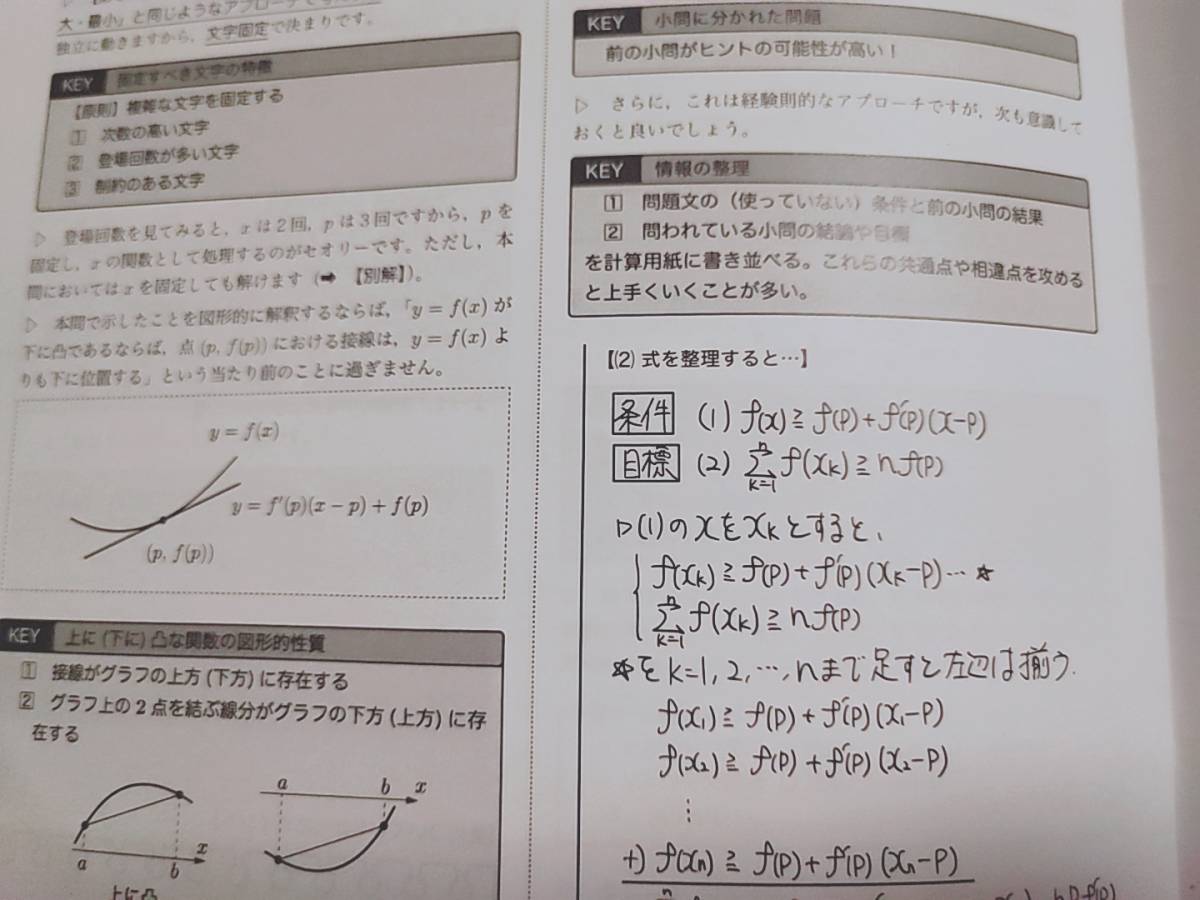 大・最小」と同じようなアプローチで
独立に動きますから、文字固定で決まりです。
KEY 固定すべき文字の特徴
【原則】複雑な文字を固定する
① 次数の高い文字
② 登場回数が多い文字
③ 制約のある文字
▷ 登場回数を見てみると，xは2回，pは3回ですから，pを
固定し，xの関数として処理するのがセオリーです。ただし，本
問においてはxを固定しても解けます (➡ 【別解】)。
▷ 本問で示したことを図形的に解釈するならば，「y = f(x) が
下に凸であるならば，点 (p, f(p)) における接線は，y = f(x) よ
りも下に位置する」という当たり前のことに過ぎません。
y = f(x)
y = f′(p)(x − p) + f(p)
(p, f(p))
KEY 上に (下に) 凸な関数の図形的性質
① 接線がグラフの上方 (下方) に存在する
② グラフ上の2点を結ぶ線分がグラフの下方 (上方) に存
在する
a b x
a b x
上に凸
KEY 小問に分かれた問題
前の小問がヒントの可能性が高い！
▷ さらに，これは経験則的なアプローチですが，次も意識して
おくと良いでしょう。
KEY 情報の整理
① 問題文の（使っていない）条件と前の小問の結果
② 問われている小問の結論や目標
を計算用紙に書き並べる。これらの共通点や相違点を攻める
と上手くいくことが多い。
【(2) 式を整理すると…】
条件 (1) f(x) ≧ f(p) + f′(p)(x−p)
目標 (2) Σ_{k=1}^{n} f(x_k) ≧ n f(p)
▷(1)のxをx_kとすると、
f(x_k) ≧ f(p) + f′(p)(x_k−p)…☆
Σ_{k=1}^{n} f(x_k) ≧ n f(p)
☆を k=1, 2, …, n まで足すと左辺は揃う.
f(x_1) ≧ f(p) + f′(p)(x_1−p)
f(x_2) ≧ f(p) + f′(p)(x_2−p)
⋮
+) f(x_n) ≧ f(p) + f′(p)(x_n−p)